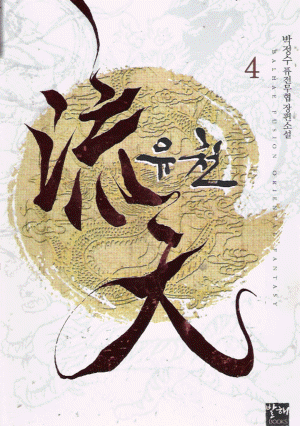 박정수 퓨전무협 장편소설
BALHAE FUSION ORIENTAL FANTASY
4
流天
유천
발해
BOOKS